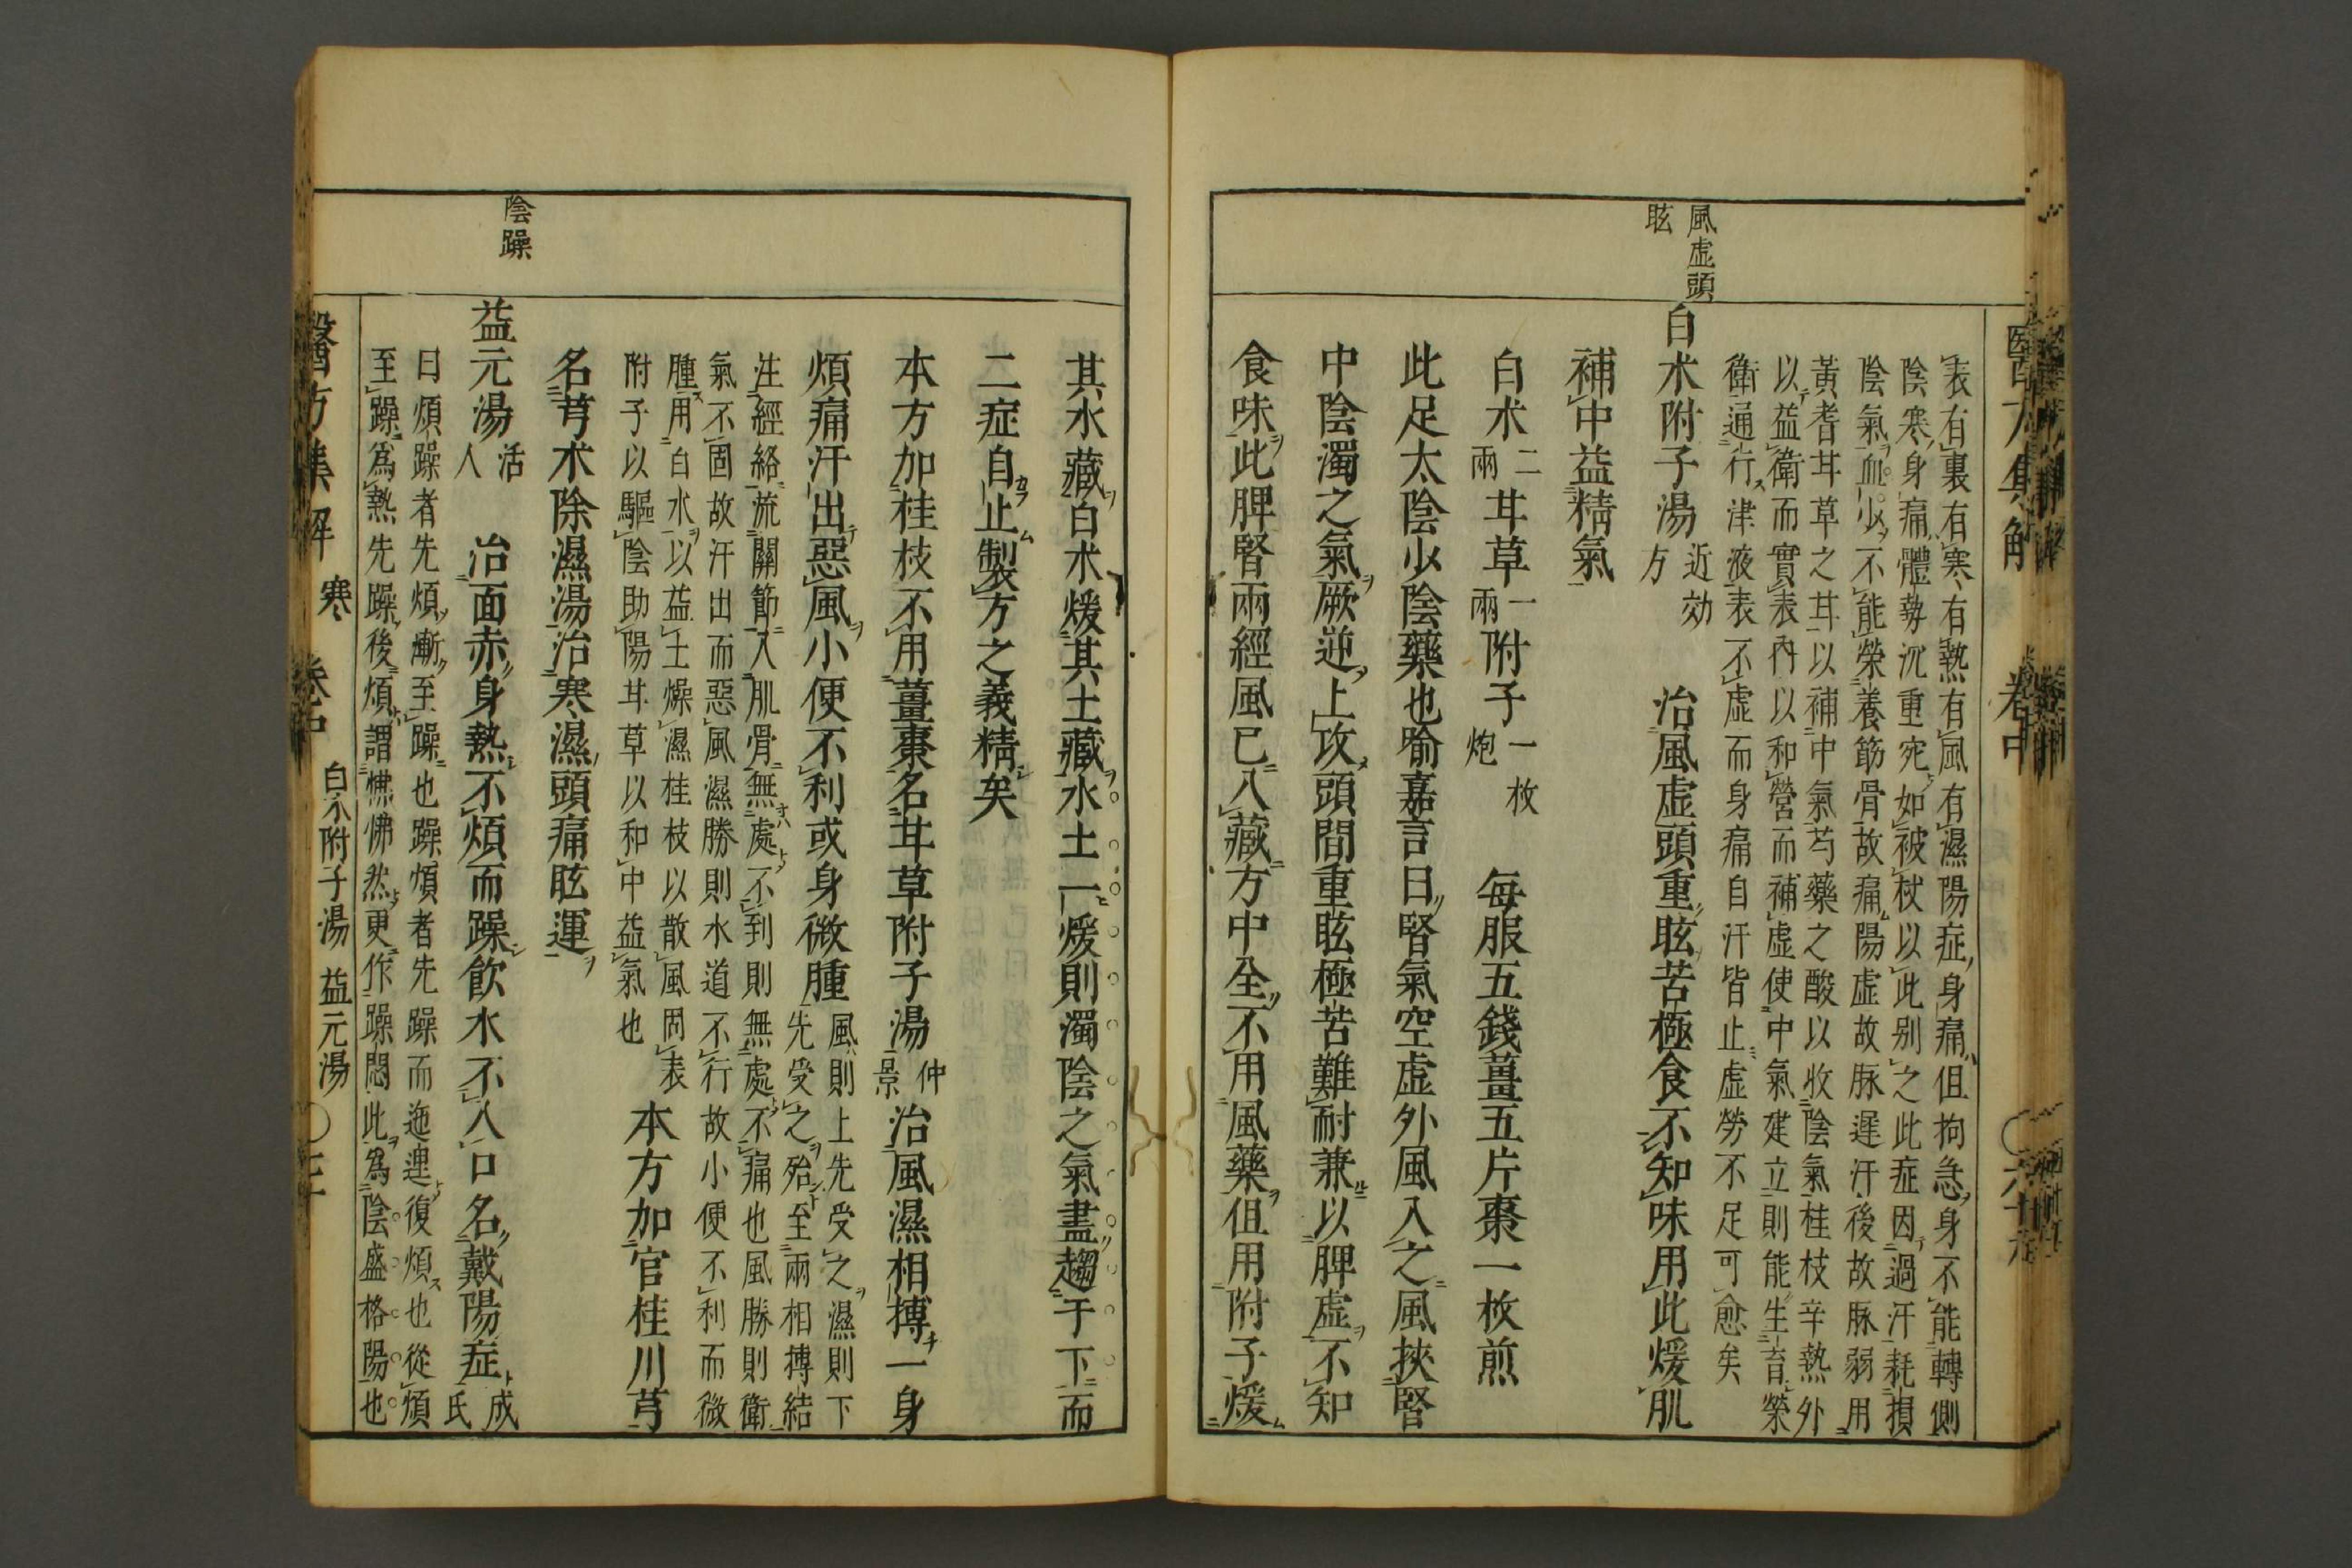 風虛頭
眩
表有裏有寒有熱有風有濕陽症身痛但拘急身不能轉側
陰寒身痛體勢沉重宛如被杖以此別之此症因過汗耗損
陰氣血少不能榮養筋骨故痛陽虛故脉遲汗後故脉弱用
黃耆甘草之甘以補中氣芍藥之酸以收陰氣桂枝辛熱外
以益衛而實表內以和營而補虛使中氣建立則能生育榮
衛通行津液表不虛而身痛自汗皆止虛勞不足可愈矣
白朮附子湯 近効
方 治風虛頭重眩苦極食不知味用此煖肌
補中益精氣
白朮 二
兩 甘草 一
兩 附子 一枚
炮 每服五錢薑五片棗一枚煎
此足太陰少陰藥也喻嘉言曰腎氣空虛外風入之風挾腎
中陰濁之氣厥逆上攻頭間重眩極苦難耐兼以脾虛不知
食味此脾腎兩經風已入藏方中全不用風藥但用附子煖
其水藏白朮煖其土藏水土一煖則濁陰之氣盡趨于下而
二症自止製方之義精矣
本方加桂枝不用薑棗名甘草附子湯 仲
景 治風濕相搏一身
煩痛汗出惡風小便不利或身微腫 風則上先受之濕則下
先受之殆至兩相搏結
注經絡流關節入肌骨無處不到則無處不痛也風勝則衛
氣不固故汗出而惡風濕勝則水道不行故小便不利而微
腫用白朮以益土燥濕桂枝以散風固表
附子以驅陰助陽甘草以和中益氣也 本方加官桂川芎
名芎朮除濕湯治寒濕頭痛眩運
陰躁
益元湯 活
人 治面赤身熱不煩而躁飲水不入口名戴陽症 成
氏
曰煩躁者先煩漸至躁也躁煩者先躁而迤逦復煩也從煩
至躁爲熱先躁後煩謂怫怫然更作躁悶此爲陰盛格陽也
醫方集解 寒 卷中 白朮附子湯 益元湯